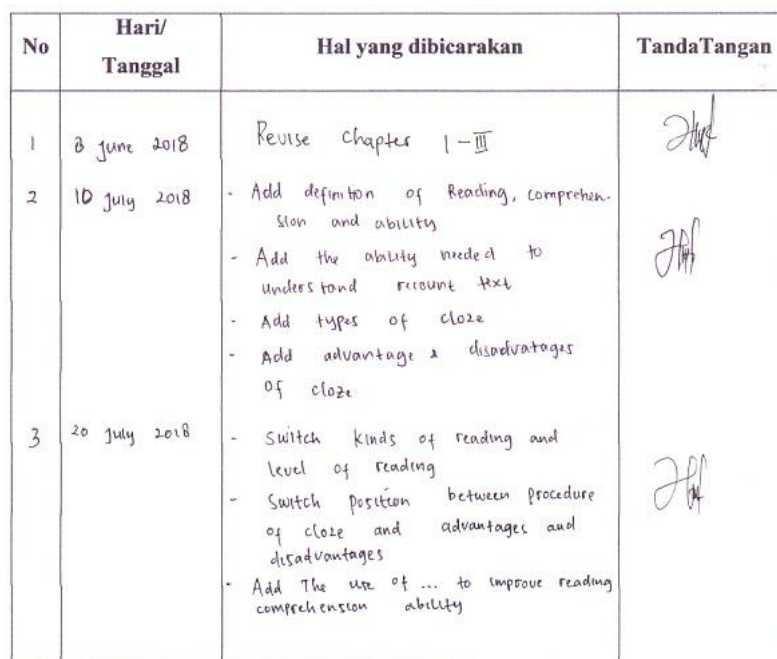 No Hari/ Tanggal Hal yang dibicarakan TandaTangan
1 8 June 2018 Revise Chapter I - III
2 10 July 2018 - Add definition of Reading, comprehen-
sion and ability
- Add the ability needed to
understand recount text
- Add types of cloze
- Add advantage & disadvatages
of cloze
3 20 July 2018 - Switch kinds of reading and
level of reading
- Switch position between procedure
of cloze and advantages and
disadvantages
- Add The use of ... to improve reading
comprehension ability